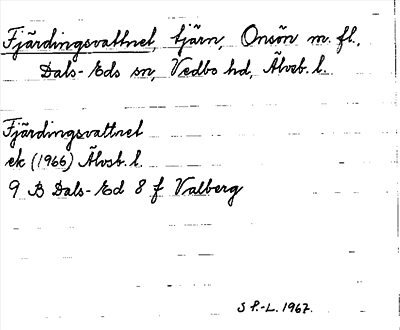 Fjärdingsvattnet, tjärn, Onsön m. fl.,
Dals-Eds sn, Vedbo hd, Älvsb. l.
Fjärdingsvattnet
ek (1966) Älvsb. l.
9 B Dals-Ed 8 f Valberg
S P.-L. 1967.